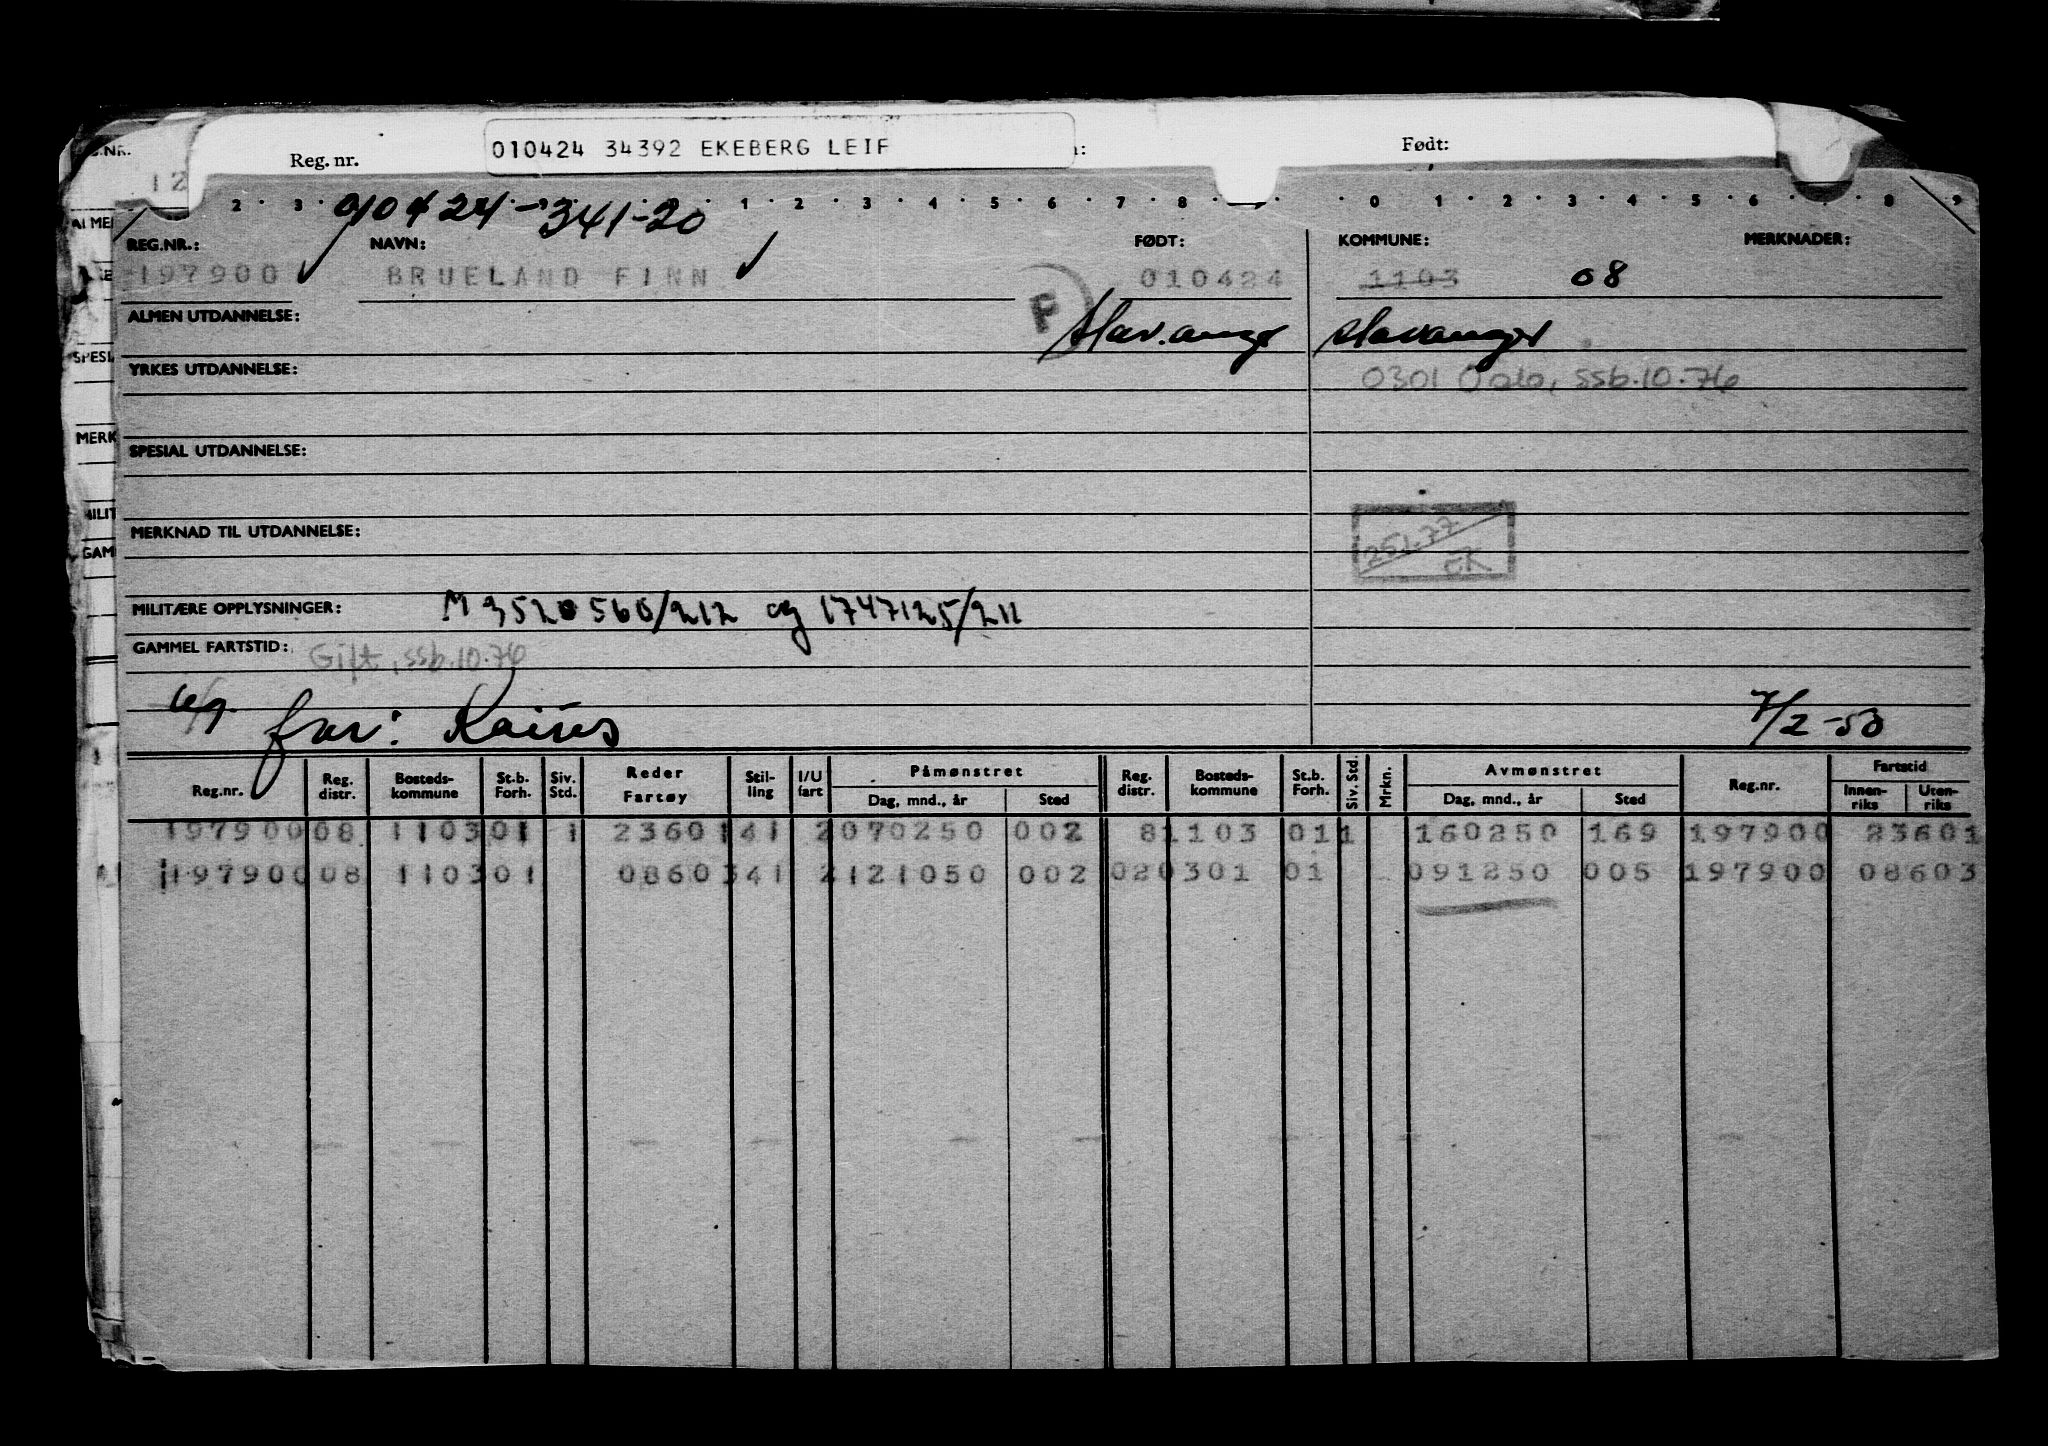 G.NR.
Reg. nr.
010424 34392 EKEBERG LEIF
Født:
12
010424-341-20
2 · 3 · 1 · 2 · 3 · 4 · 5 · 6 · 7 · 8 · 0 · 1 · 2 · 3 · 4 · 5 · 6 · 8 · 9
REG.NR.: NAVN: FØDT: KOMMUNE: MERKNADER:
197900 BRUELAND FINN 010424 1103 08
ALMEN UTDANNELSE: F Stavanger Stavanger
YRKES UTDANNELSE: 0301 Oslo, ssb.10.76
SPESIAL UTDANNELSE:
MERKNAD TIL UTDANNELSE: 251.77 EK
MILITÆRE OPPLYSNINGER: M 3520560/212 og 1747125/211
GAMMEL FARTSTID: Gift, ssb.10.76
far: 7/2-50
Reg.nr. Reg. distr. Bosteds-kommune St.b. Forh. Siv. Std. Reder Fartøy Stil-ling I/U fart Påmønstret Dag, mnd., år Sted Reg. distr. Bosteds-kommune St.b. Forh. Siv. Std. Mrkn. Avmønstret Dag, mnd., år Sted Reg.nr. Fartstid Innen-riks Uten-riks
197900 08 1103 01 1 23601 41 2 070250 002 8 1103 01 1 160250 169 197900 23601
197900 08 1103 01 08603 41 2 121050 002 02 0301 01 091250 005 197900 08603